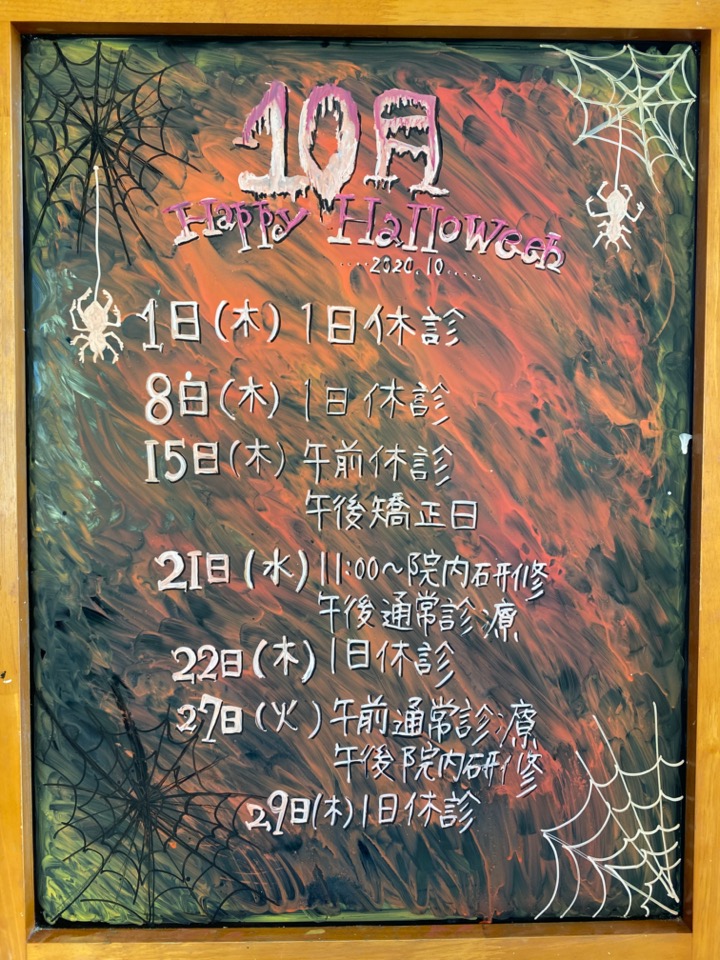 10月
Happy Halloween
.....2020.10.....
1日(木) 1日休診
8日(木) 1日休診
15日(木) 午前休診
午後矯正日
21日(水) 11:00〜院内研修
午後通常診療
22日(木) 1日休診
27日(火) 午前通常診療
午後院内研修
29日(木) 1日休診